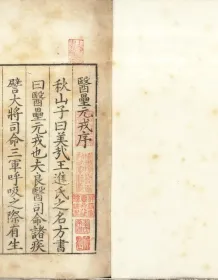 醫壘元戎序
秋山子曰美哉王進氏之名方書
曰醫壘元戎也夫良醫司命諸疾
譬大將司命三軍呼吸之際有生